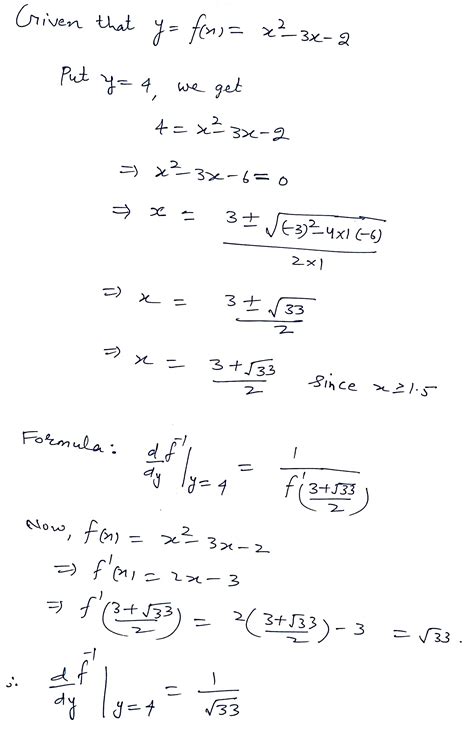 Given that y = f(x) = x² - 3x - 2
Put y = 4, we get
4 = x² - 3x - 2
⇒ x² - 3x - 6 = 0
⇒ x = (3 ± √((-3)² - 4×1(-6))) / (2×1)
⇒ x = (3 ± √33) / 2
⇒ x = (3 + √33) / 2 since x ≥ 1.5
Formula: d/dy f⁻¹ |y=4 = 1 / f'((3+√33)/2)
Now, f(x) = x² - 3x - 2
⇒ f'(x) = 2x - 3
⇒ f'((3+√33)/2) = 2((3+√33)/2) - 3 = √33.
∴ d/dy f⁻¹ |y=4 = 1/√33